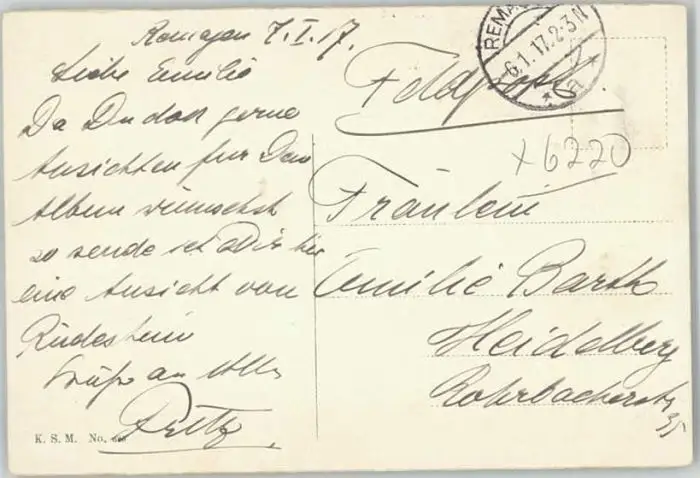 Remagen 7.I.17.
Liebe Emilie
Da Du doch gerne
Ansichten für Dein
Album wünschst
so sende ich Dir hier
eine Ansicht von
Rüdesheim
Grüße an Alle
Fritz
K. S. M. No.
REMAG
6.1.17.2-3N
* a *
Feldpost.
+6220
Fräulein
Emilie Barth
Heidelberg
Rohrbacherstr
35